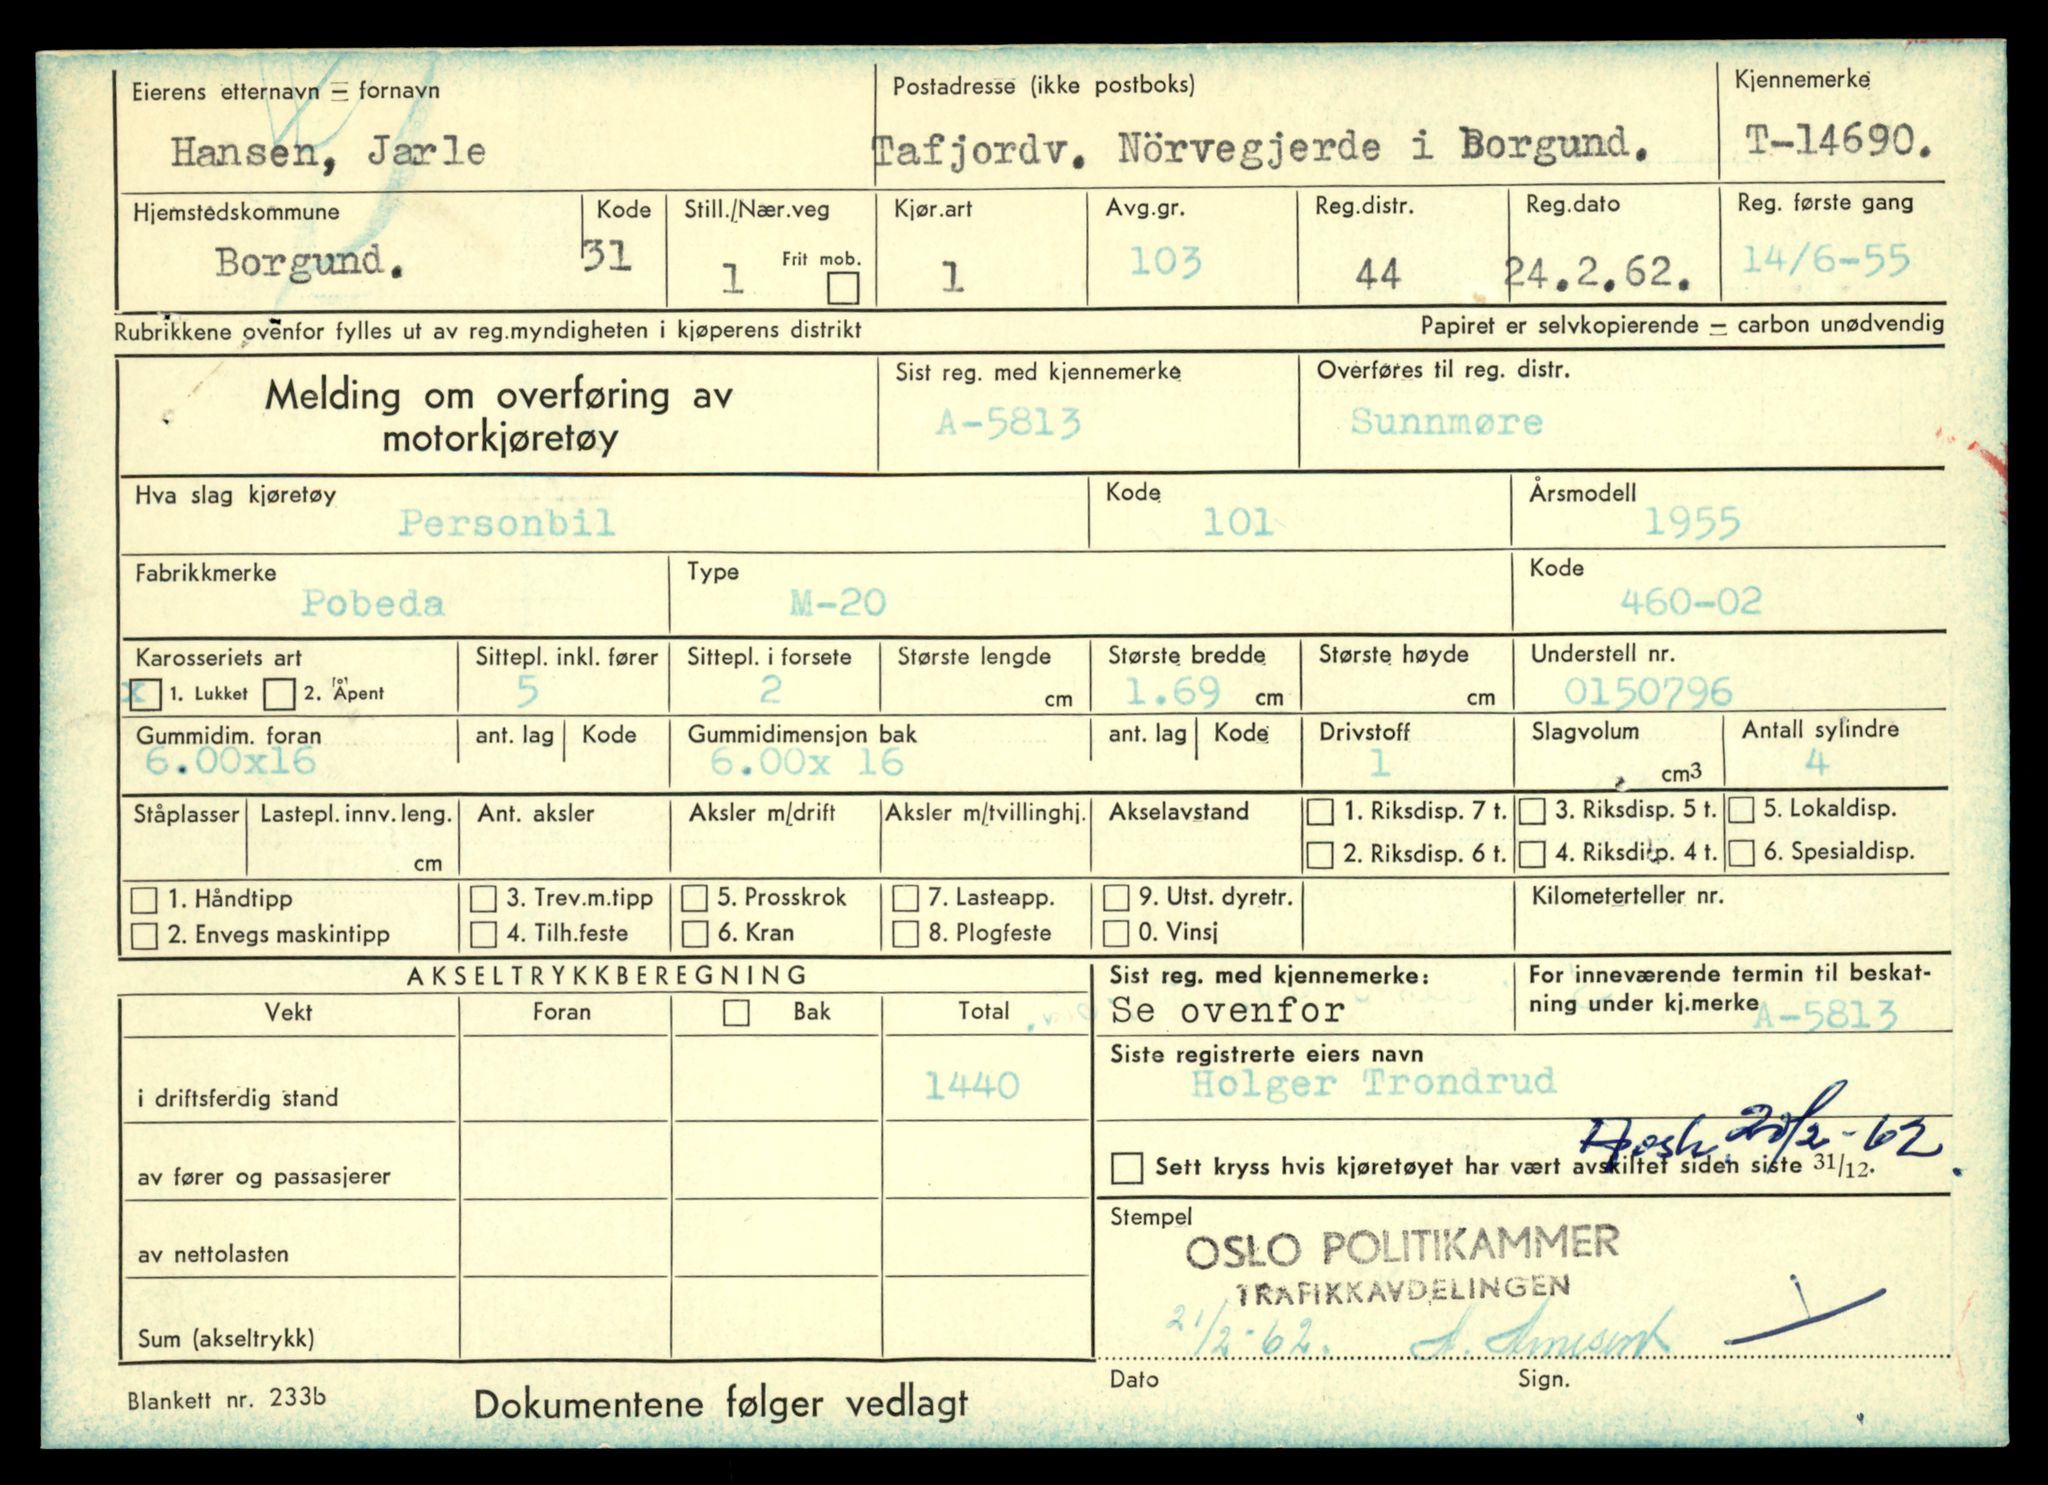 Eierens etternavn – fornavn
Hansen, Jarle
Postadresse (ikke postboks)
Tafjordv. Nörvegjerde i Borgund.
Kjennemerke
T-14690.
Hjemstedskommune
Borgund.
Kode
31
Still./Nær.veg
1
Frit mob.
Kjør.art
1
Avg.gr.
103
Reg.distr.
44
Reg.dato
24.2.62.
Reg. første gang
14/6-55
Rubrikkene ovenfor fylles ut av reg.myndigheten i kjøperens distrikt
Papiret er selvkopierende – carbon unødvendig
Melding om overføring av
motorkjøretøy
Sist reg. med kjennemerke
A-5813
Overføres til reg. distr.
Sunnmøre
Hva slag kjøretøy
Personbil
Kode
101
Årsmodell
1955
Fabrikkmerke
Pobeda
Type
M-20
Kode
460-02
Karosseriets art
x 1. Lukket 2. Åpent
Sittepl. inkl. fører
5
Sittepl. i forsete
2
Største lengde
cm
Største bredde
1.69 cm
Største høyde
cm
Understell nr.
0150796
Gummidim. foran
6.00x16
ant. lag
Kode
Gummidimensjon bak
6.00x 16
ant. lag
Kode
Drivstoff
1
Slagvolum
cm3
Antall sylindre
4
Ståplasser
Lastepl. innv. leng.
cm
Ant. aksler
Aksler m/drift
Aksler m/tvillinghj.
Akselavstand
1. Riksdisp. 7 t.
2. Riksdisp. 6 t.
3. Riksdisp. 5 t.
4. Riksdisp. 4 t.
5. Lokaldisp.
6. Spesialdisp.
1. Håndtipp
2. Envegs maskintipp
3. Trev.m.tipp
4. Tilh.feste
5. Prosskrok
6. Kran
7. Lasteapp.
8. Plogfeste
9. Utst. dyretr.
0. Vinsj
Kilometerteller nr.
AKSELTRYKKBEREGNING
Vekt
Foran
Bak
Total
i driftsferdig stand
1440
av fører og passasjerer
av nettolasten
Sum (akseltrykk)
Sist reg. med kjennemerke:
Se ovenfor
For inneværende termin til beskat-
ning under kj.merke
A-5813
Siste registrerte eiers navn
Holger Trondrud
20/2-62.
Sett kryss hvis kjøretøyet har vært avskiltet siden siste 31/12.
Stempel
OSLO POLITIKAMMER
TRAFIKKAVDELINGEN
21/2-62.
Dato
Sign.
Blankett nr. 233b
Dokumentene følger vedlagt